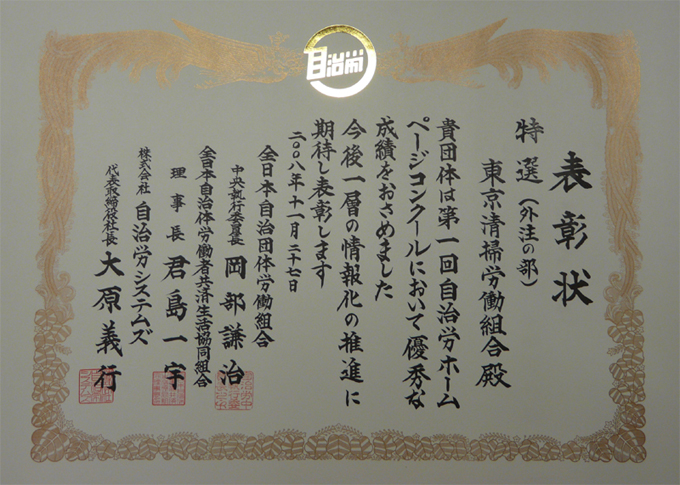 自治労
表彰状
特選（外注の部）
東京清掃労働組合殿
貴団体は第一回自治労ホーム
ページコンクールにおいて優秀な
成績をおさめました
今後一層の情報化の推進に
期待し表彰します
二〇〇八年十一月二十七日
全日本自治団体労働組合
中央執行委員長 岡部謙治
全日本自治体労働者共済生活協同組合
理事長 君島一宇
株式会社 自治労システムズ
代表取締役社長 大原義行